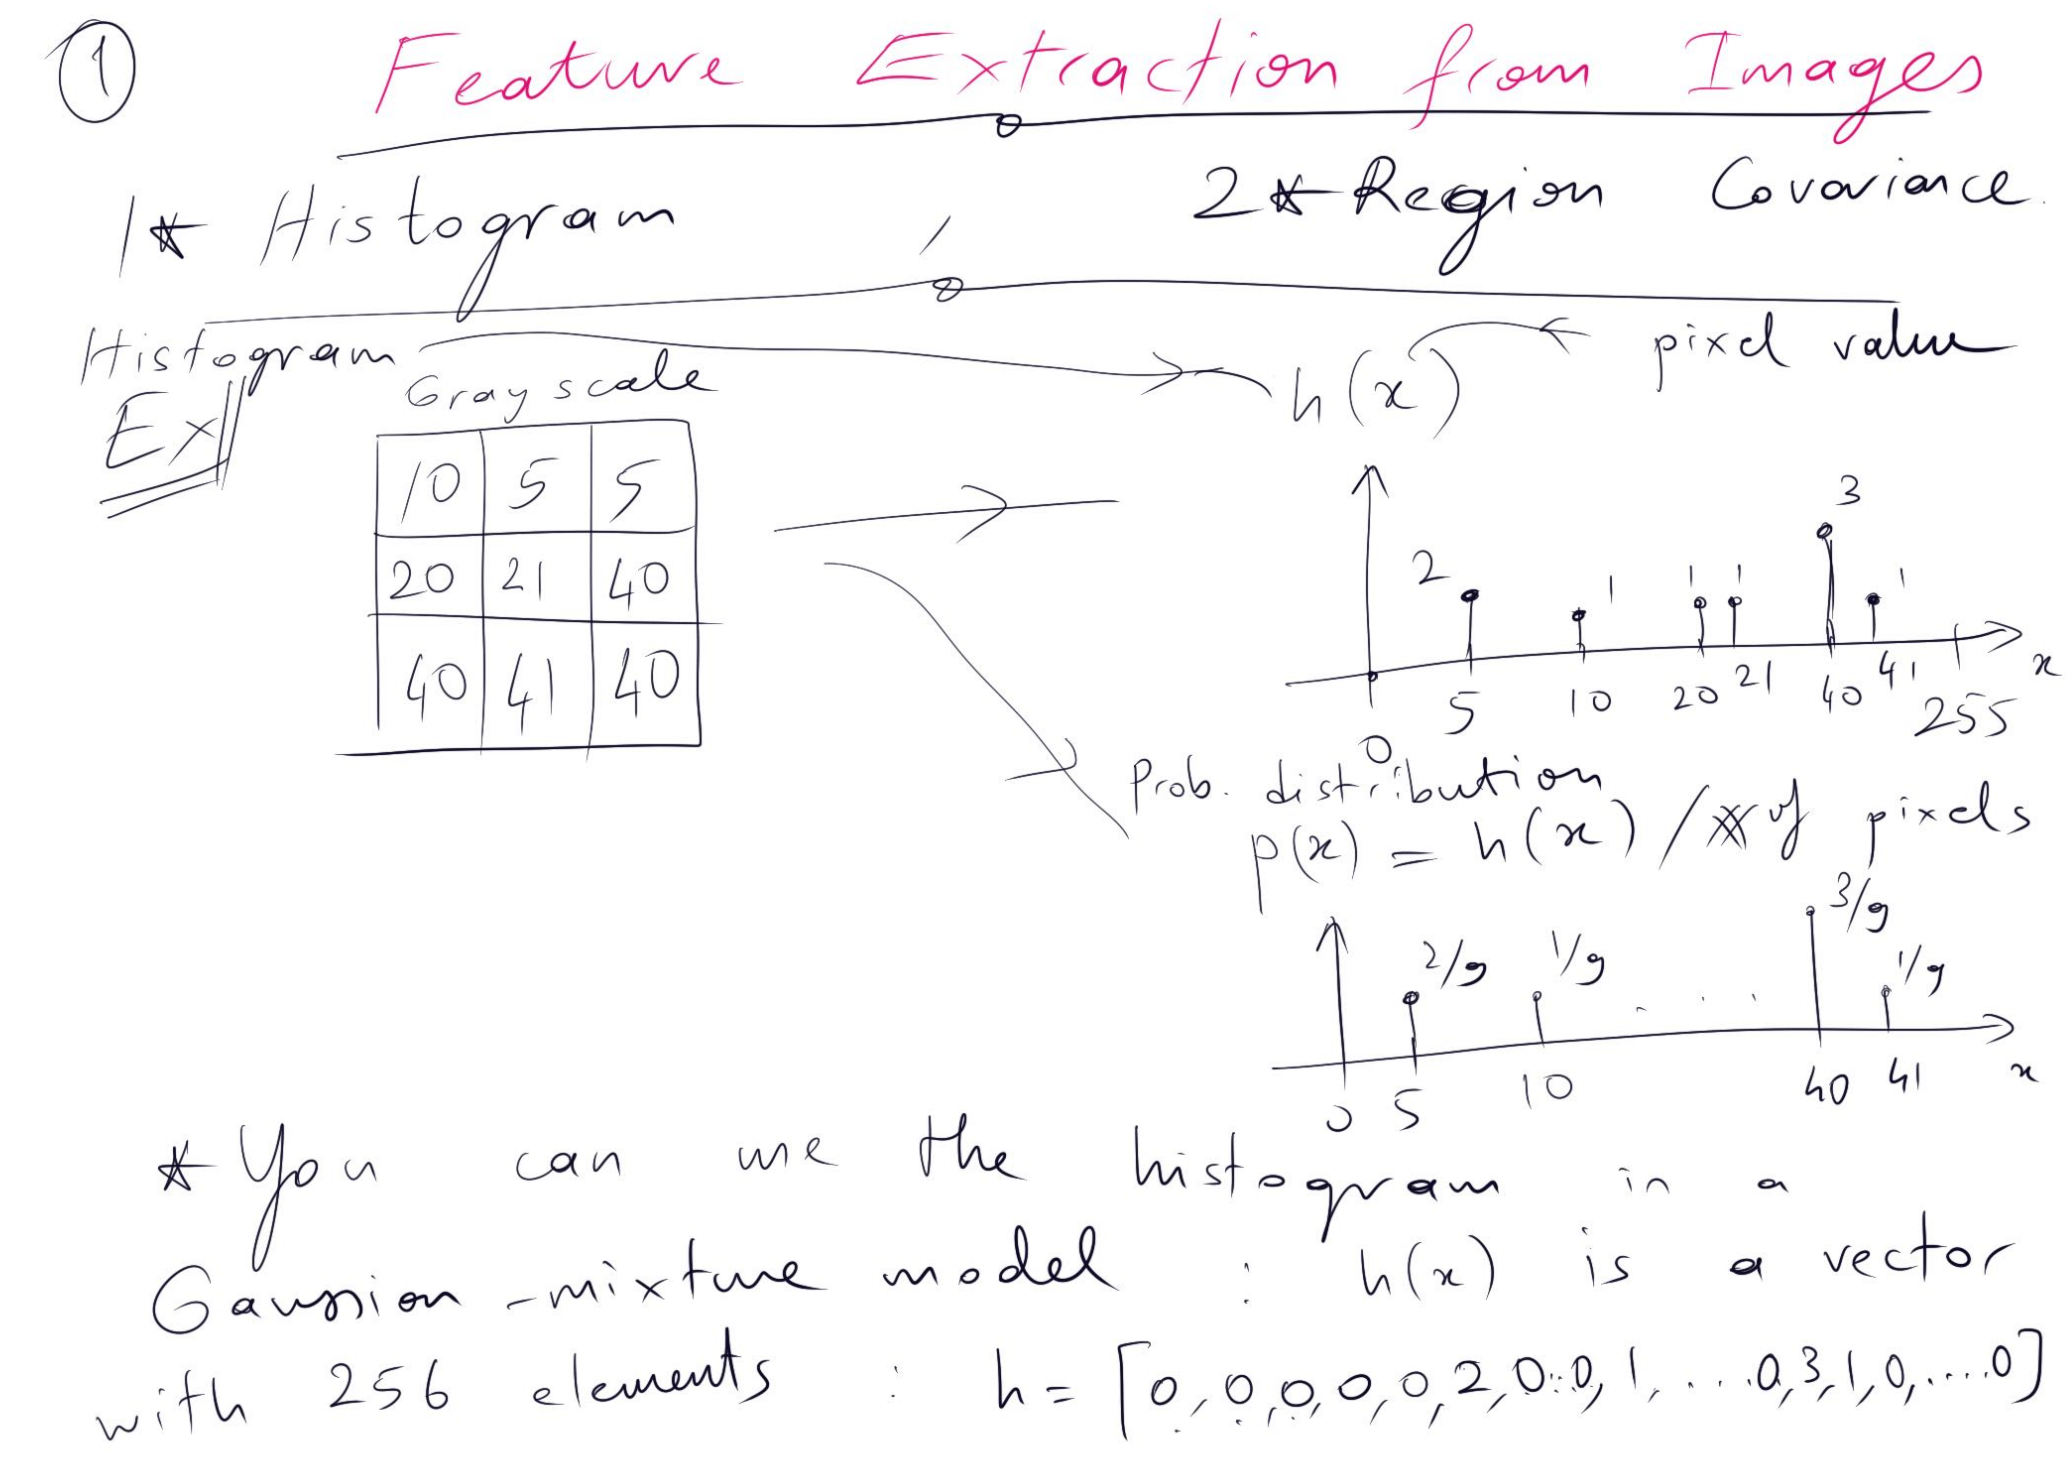 1
Feature Extraction from Images
1* Histogram , 2* Region Covariance
Histogram h(x) pixel value
Ex
Gray scale
10 5 5
20 21 40
40 41 40
2 1 1 1 3 1
0 5 10 20 21 40 41 255 x
Prob. distribution
p(x) = h(x) / # of pixels
2/9 1/9 . . . 3/9 1/9
0 5 10 40 41 x
* You can use the histogram in a
Gaussian-mixture model : h(x) is a vector
with 256 elements : h = [0, 0, 0, 0, 0, 2, 0..0, 1, ...0, 3, 1, 0, ....0]